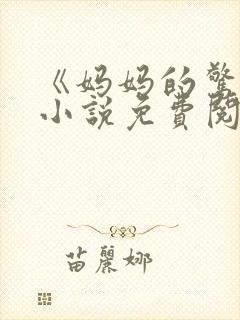 《妈妈的驚
小説免費閱
苗麗娜